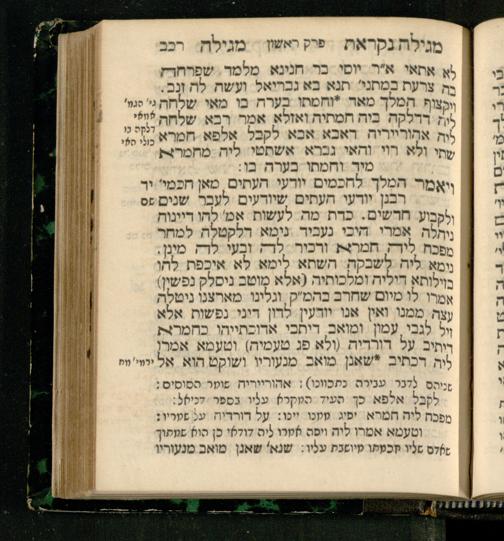 מגילה נקראת פרק ראשון מגילה רכב
לא אתאי א״ר יוסי בר חנינא מלמד שפרחה
בה צרעת במתני׳ תנא בא גבריאל ועשה לה זנב.
ויקצוף המלך מאד *וחמתו בערה בו מאי שלחה
ליה דדלקה ביה חמתיה ואזלא אמר רבא שלחה
ליה אהורייריה דאבא אבא לקבל אלפא חמרא
שתי ולא רוי והאי גברא אשתטי ליה מחמרא
מיד וחמתו בערה בו:
ויאמר המלך לחכמים יודעי העתים מאן חכמי׳
רבנן יודעי העתים שיודעים לעבר שנים
ולקבוע חדשים. כדת מה לעשות אמ׳ להו דיינוה
ניהלה אמרי היכי נעביד נימא דלקטלה למחר
מפכח ליה חמרא ודכיר לה ובעי לה מינן.
נימא ליה לשבקה השתא לימא לא איכפת להו
בזילותא דיליה ומלכותיה (אלא מוטב ניסלק נפשין)
אמרו לו מיום שחרב בהמ״ק וגלינו מארצנו ניטלה
עצה ממנו ואין אנו יודעין לדון דיני נפשות אלא
זיל לגבי עמון ומואב דיתבי אדוכתייהו כחמרא
דיתיב על דורדיה (ולא פג טעמיה) וטעמא אמרו
ליה דכתיב *שאנן מואב מנעוריו ושוקט הוא אל
גי׳ הגמ׳
אמאי
דלקה בו
כולי האי
יד
שם
ירמי׳ מח
שניהם לדבר עבירה נתכוונו): אהורייריה שומר הסוסים:
לקבל אלפא כך העיד המקרא עליו בספר דניאל:
מפכח ליה חמרא יסיג ממנו יינו: על דורדיה על שמריו:
וטעמא אמרו ליה ויפה אמרו ליה דודאי כן הוא שמתוך
שאדם שליו חכמתו מיושבת עליו: שנא׳ שאנן מואב מנעוריו